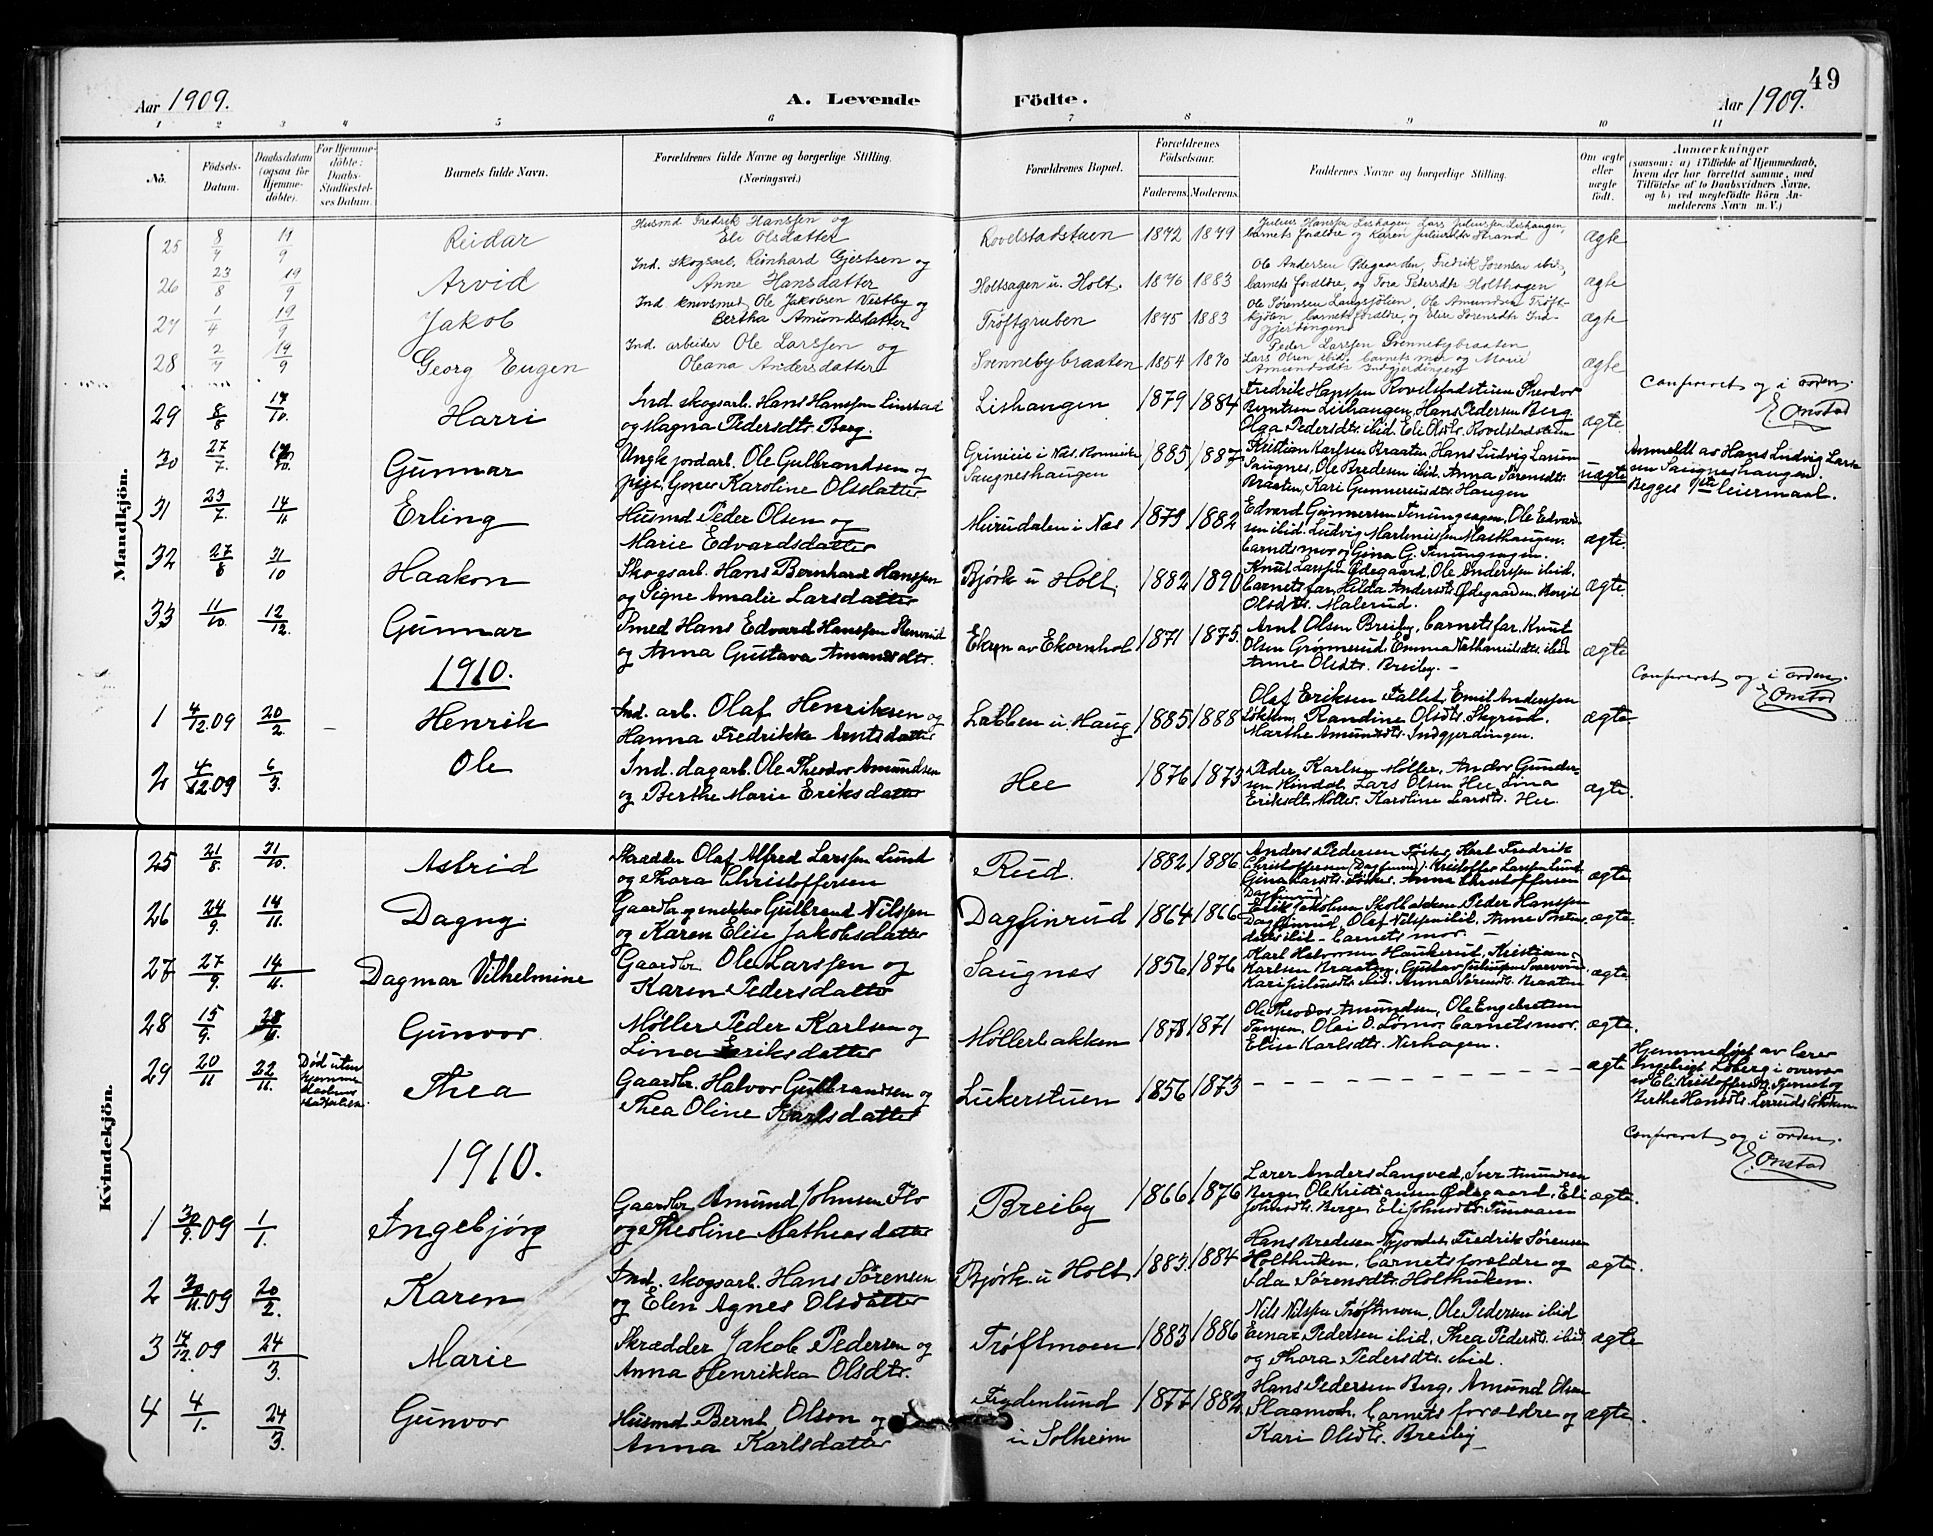 49
Aar 1909. A. Levende Födte. Aar 1909.
1 2 3 4 5 6 7 8 9 10 11
No. Födsels-Datum. Daabsdatum (ogsaa för Hjemme-döbte). For Hjemme-döbte: Daabs-Stadfæstel-ses Datum. Barnets fulde Navn. Forældrenes fulde Navne og borgerlige Stilling. (Næringsvei.) Forældrenes Bopæl. Forældrenes Födselsaar. Faderens. Moderens. Faddernes Navne og borgerlige Stilling. Om ægte eller uægte født. Anmærkninger (saasom: a) i Tilfælde af Hjemmedaab, hvem der har forrettet samme, med Tilföielse af to Daabsvidners Navne, og b) ved uægtefödte Börn An-melderens Navn m. V.)
Mandkjön.
25 8/7 11/9 Reidar Husmd Fredrik Hanssen og
Eli Olsdatter Rovelstadstuen 1872 1879 Julius Hanssen Lishagen, Lars Juliussen Lishaugen,
barnets forældre og Karen Juliusdtr Strand ægte
26 23/8 19/9 Arvid Ind. skogsarb. Reinhard Gjestsen og
Anne Hansdatter Holtsagen u. Holt. 1876 1883 Ole Andersen Ødegaarden, Fredrik Sørensen ibid,
barnets forældre, og Tora Pedersdtr Holthagen ægte
27 1/4 19/9 Jakob Ind. knivsmed Ole Jakobsen Vestby og
Bertha Amundsdatter Trøftgruben 1875 1883 Ole Sørensen Langsjølien, Ole Amundsen Trøft-
barnets forældre, og Sørensdtr Ind-
gjerdingen ægte
28 2/7 19/9 Georg Eugen Ind. arbeider Ole Larssen og
Oleana Andersdatter Svennebybraaten 1854 1870 Peder Larssen Svennebybraaten
Lars Olsen ibid. barnets mor og Marie
Amundsdtr Indgjerdingen ægte
Confereret og i orden.
E. Onstad
29 8/8 17/10. Harri Ind. skogsarb. Hans Hanssen Linstad
og Magna Pedersdtr. Berg. Lishaugen 1879 1884 Fredrik Hanssen Rovelstadstuen Theodor
Berntsen Lishaugen, Hans Pedersen Berg
Olga Pedersdtr ibid. Eli Olsdtr. Rovelstadstuen ægte.
30 27/7 Gunnar Ungk. jordarb. Ole Gulbrandsen og
pige Karoline Olsdatter i Næs
Saugneshaugen 1885 1887 Kristian Karlsen Braaten, Hans Ludvig Larssen
Saugnes, Ole Bredesen ibid. Anna Sørensdtr
Braaten, Kari Gunneriusdtr Haugen uægte Anmeldt av Hans Ludvig Lars-
sen Saugneshaugen.
Begges 1ste leiermaal.
31 23/7 14/11 Erling Husmd Peder Olsen og
Marie Edvardsdatter Murudalen i Næs 1879 1882 Edvard Gunnersen Finungsagen, Ole Edvard-
sen ibid, Ludvig Martiniussen Masthaugen.
barnets mor og Gina G. Finungsagen. ægte.
32 27/8 31/10 Haakon Skogsarb. Hans Bernhard Hanssen
og Signe Amalie Larsdatter Bjørk u Holt 1882 1890 Knut Larssen Ødegaard, Ole Anderssen ibid.
barnets far, Hilda Andersdtr Ødegaarden,
Olsdtr. Malerud. ægte.
33 11/10 12/12. Gunnar Smed Hans Edvard Hanssen
og Anna Gustava Amundsdtr. Ekren av Ekornhol 1871 1875. Arnt Olsen Breiby, barnets far. Knut
Olsen Grønnerud, Emma Nathanielsdtr. ibid
Anne Olsdtr. Breiby. - ægte
1910.
Confereret og i orden.
E. Onstad
1 4/12 09 20/2 - Henrik Ind. arb. Olaf Henriksen og
Hanna Fredrikke Arntsdatter Labben u. Haug 1885 1888 Olaf Eriksen Fallet, Emil Anderssen
Løkken, Randine Olsdtr. Skyrud.
Marthe Amundsdtr. Indgjerdingen. ægte.
2 4/12 09 6/3 Ole Ind. dagarb. Ole Theodor Amundsen
og Berthe Marie Eriksdatter Hee 1876 1873 Peder Karlsen Møller, Andor Gunder-
sen Hindal, Lars Olsen Hee, Lina
Eriksdtr Møller. Karoline Larsdtr. Hee. ægte.
Kvindekjön.
25 21/8. 31/10. Astrid Skrædder Olaf Alfred Larssen Lund
og Thora Christoffersen Rud. 1882 1886 Anders Pedersen Karl Fredrik
Christoffersen (Dagfinrud). Kristoffer Larssen Lund
Gina Larsdtr. Anna Christoffersen
Dagfinrud ægte.
26 24/9. 14/11. Dagny. Gaardbr. og snekker Gulbrand Nilssen
og Karen Elise Jakobsdatter Dagfinrud 1864 1866 Erik Jakobsen Skolbakken Peder Hanssen
Dagfinrud, Olaf Nilssen ibid. Anne
datter ibid - barnets mor. - ægte.
27 27/9. 14/11. Dagmar Vilhelmine Gaardbr Ole Larssen og
Karen Pedersdatter Saugnes 1856 1876 Karl Halvorsen Haukerud, Kristian
Karlsen Braaten, Gustav Juliussen
Kari Juliusdtr ibid. Anna Sørensdtr. Braaten ægte.
28 15/9. 28/11. Gunvor Møller Peder Karlsen og
Lina Eriksdatter Møllerbakken 1878 1871 Ole Theodor Amundsen, Ole Engebretsen
Tangen, Olai O. Lømo, barnets mor.
Elise Karlsdtr. Nerhagen. ægte.
29 20/11 22/11. Død uten
hjemme-
daabens
stadfæstelse. Thea Gaardbr. Halvor Gulbrandsen og
Thea Oline Karlsdatter Lukerstuen 1856 1873 - - - - - ægte Hjemmedøpt av lærer
Ingebrigt Loberg i overvær
av Eli Kristoffersdtr. og
Berthe Hansdtr. Lerruds Løkken
1910.
Confereret og i orden.
E. Onstad
1 30/9. 09 1/1. Ingebjörg Gaardbr Amund Johnsen Flo
og Theoline Mathiasdatter Breiby 1866 1876 Lærer Anders Langved, Iver Amundsen
Berger Ole Kristiansen Ødegaard, Eli
Johnsdtr. Berger Eli Johnsdtr. ægte.
2 30/11. 09 20/2. Karen Ind. skogsarb. Hans Sørensen
og Elen Agnes Olsdatter Bjørk u Holt 1883. 1884 Hans Bredesen Fredrik Sørensen
Holthuken, barnets forældre og
Ida Sørensdtr. Holthuken. ægte.
3 17/12. 09 24/3. Marie Skrædder Jakob Pedersen og
Anna Henrikka Olsdtr. Trøftmoen 1883 1886 Nils Nilssen Trøftmoen, Ole Pedersen ibid
Einar Pedersen ibid, Thea Pedersdtr. ibid
og Thora Pedersdtr. ibid. ægte
4 4/1. 24/3. Gunvor Husmd Bernt Olsen og
Anna Karlsdatter Frydenlund
u Solheim 1877 1882 Hans Pedersen Berg, Amund Olsen
Slaamoen, barnets forældre og
Kari Olsdtr. Breiby ægte.